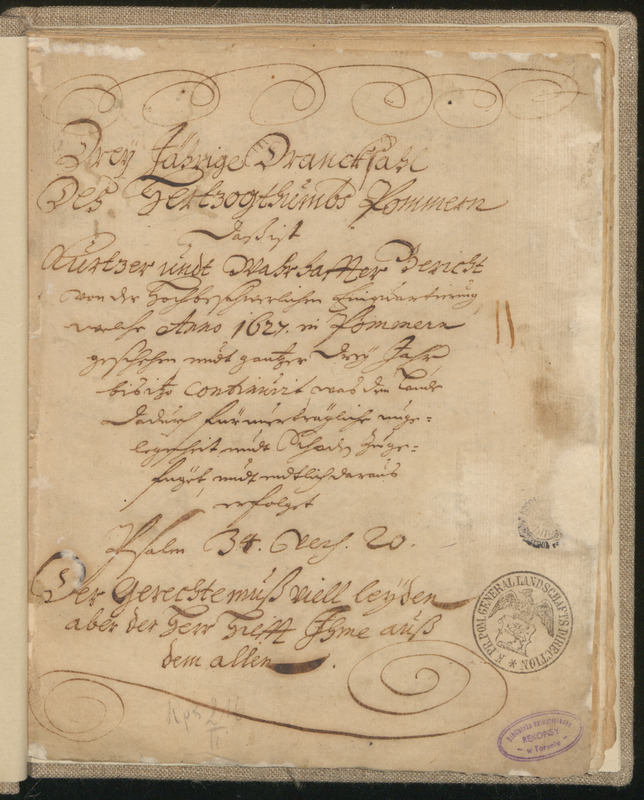 Dreÿ Jährige Drancksahl
Des Hertzogthumbs Pommern
Das ist
Kurtzer undt Wahrhaffter Bericht
von der Hochbeschwerlichen Einquartierung
welche Anno 1627. in Pommern
geschehen undt gantzer Dreÿ Jahr
bis itzo continuirt was dem Lande
dadurch für unerträgliche unge=
legenheit undt Schaden zuge=
füget, undt endtlich daraus
erfolget
Psalm 34. Vers. 20.
Der Gerechte muß viell leÿden
aber der Herr hilfft Ihme auß
dem allen.
K. PR. POM. GENERAL LANDSCHAFTS DIRECTION
RĘKOPISY
w Toruniu